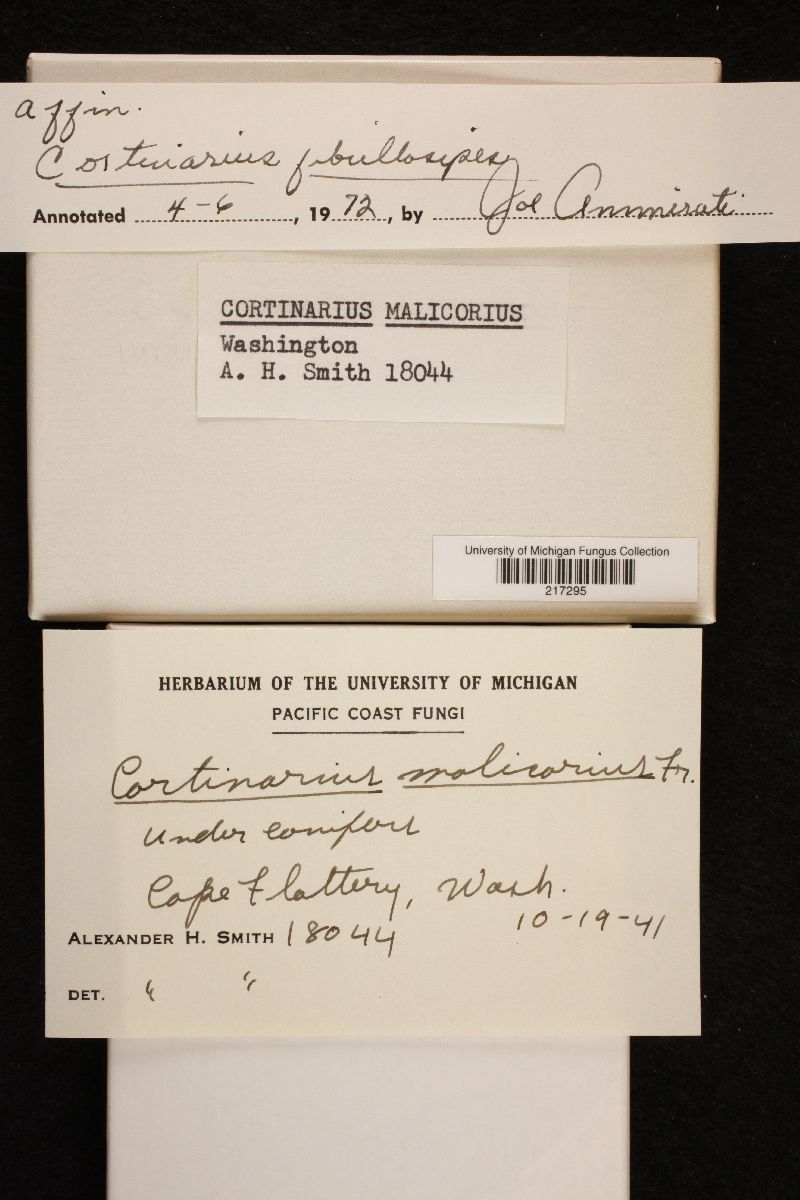 affin.
Cortinarius fibrillosipes
Annotated 4-6, 1972, by Joe Ammirati
CORTINARIUS MALICORIUS
Washington
A. H. Smith 18044
University of Michigan Fungus Collection
217295
HERBARIUM OF THE UNIVERSITY OF MICHIGAN
PACIFIC COAST FUNGI
Cortinarius malicorius Fr.
under conifers
Cape Flattery, Wash.
10-19-41
ALEXANDER H. SMITH 18044
DET. " "